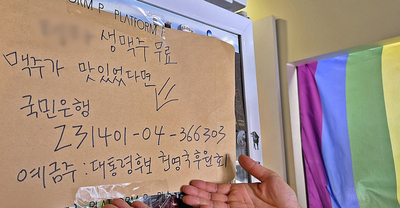 P PLATFORM
생맥주 무료
맥주가 맛있었다면
국민은행
231401-04-366303
예금주 : 대통령후보 권영국후원회